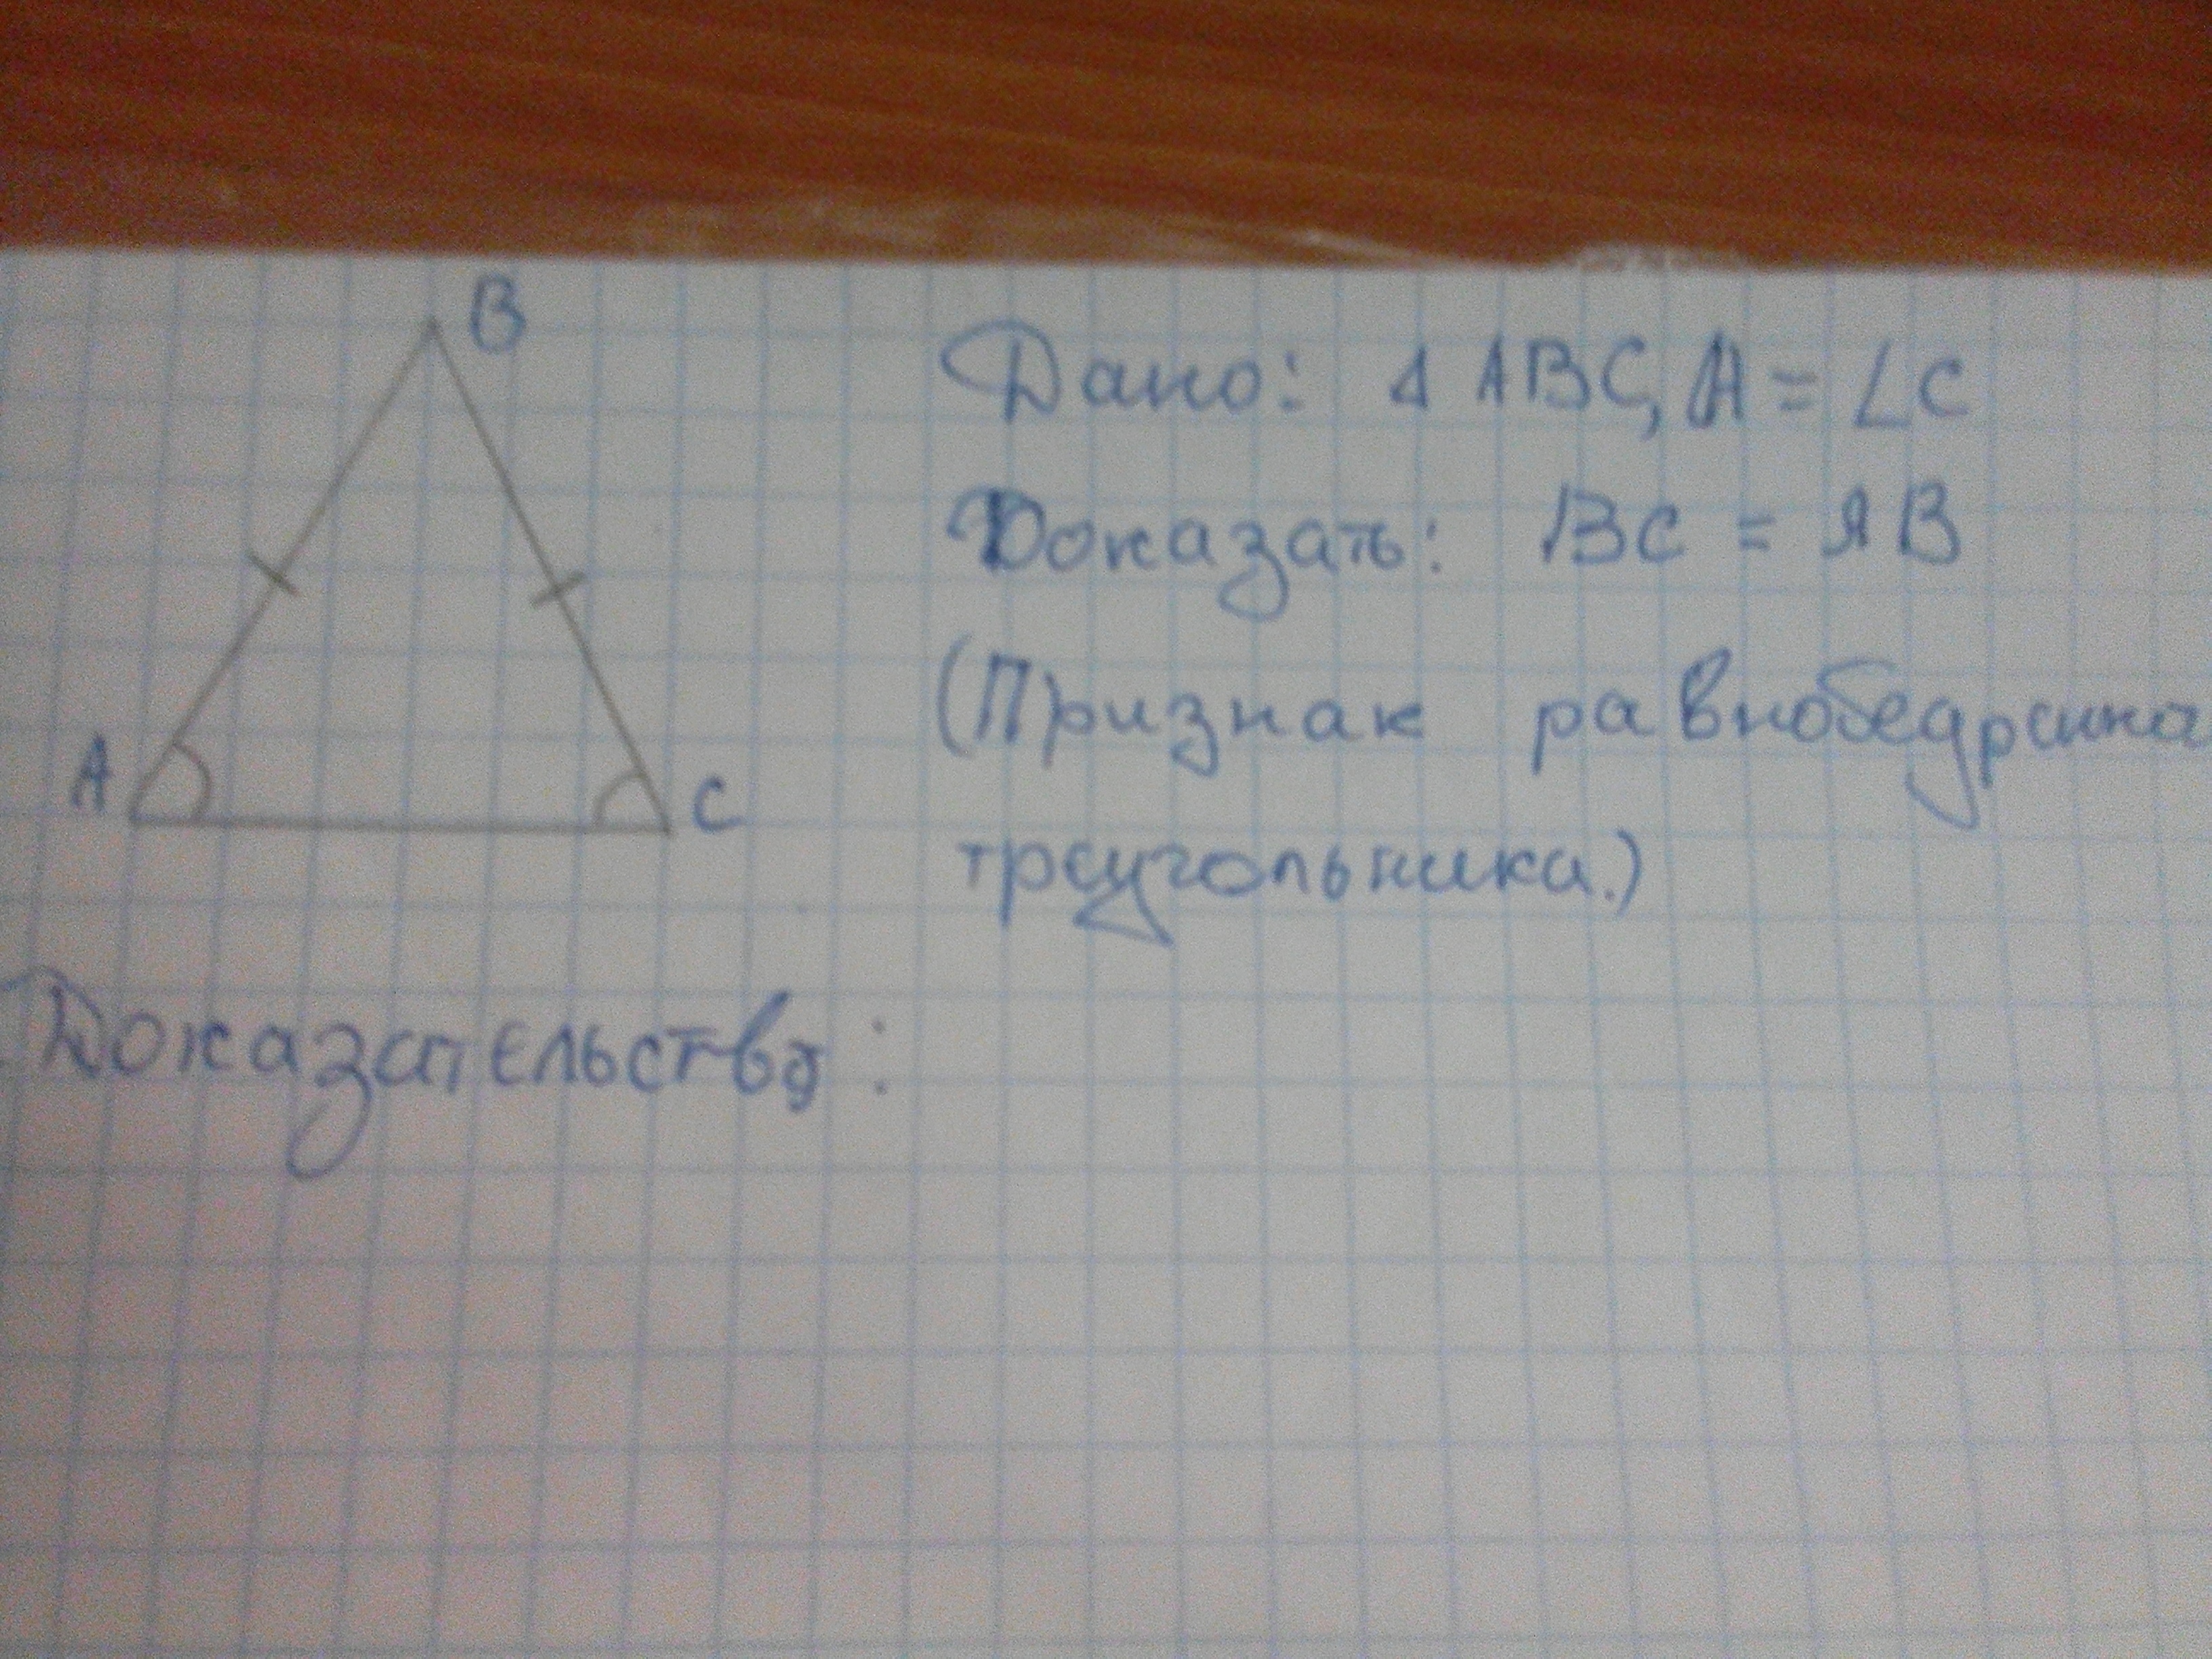 B
Дано: Δ ABC, A = ∠C
Доказать: BC = AB
(Признак равнобедренно
A
C
треугольника.)
Доказательство: